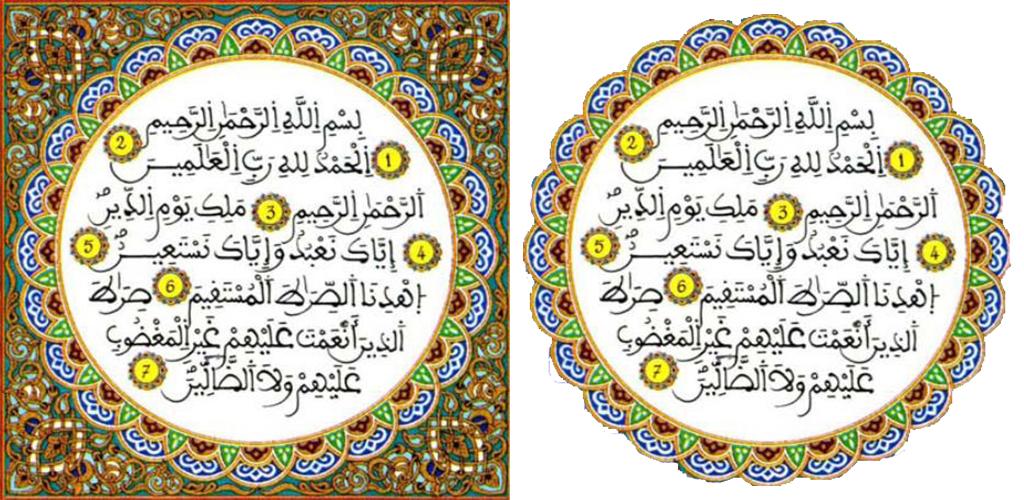 بِسْمِ اِللَّهِ اِلرَّحْمَٰنِ اِلرَّحِيمِ
1 اَلْحَمْدُ لِلهِ رَبِّ اِلْعَٰلَمِينَ 2
اَلرَّحْمَٰنِ اِلرَّحِيمِ 3 مَلِكِ يَوْمِ اِلدِّينِ
4 إِيَّاكَ نَعْبُدُ وَإِيَّاكَ نَسْتَعِينُ 5
اِهْدِنَا اَلصِّرَٰطَ اَلْمُسْتَقِيمَ 6 صِرَٰطَ
اَلذِينَ أَنْعَمْتَ عَلَيْهِمْ غَيْرِ اِلْمَغْضُوبِ
عَلَيْهِمْ وَلَا اَلضَّآلِّينَ 7
بِسْمِ اِللَّهِ اِلرَّحْمَٰنِ اِلرَّحِيمِ
1 اَلْحَمْدُ لِلهِ رَبِّ اِلْعَٰلَمِينَ 2
اَلرَّحْمَٰنِ اِلرَّحِيمِ 3 مَلِكِ يَوْمِ اِلدِّينِ
4 إِيَّاكَ نَعْبُدُ وَإِيَّاكَ نَسْتَعِينُ 5
اِهْدِنَا اَلصِّرَٰطَ اَلْمُسْتَقِيمَ 6 صِرَٰطَ
اَلذِينَ أَنْعَمْتَ عَلَيْهِمْ غَيْرِ اِلْمَغْضُوبِ
عَلَيْهِمْ وَلَا اَلضَّآلِّينَ 7